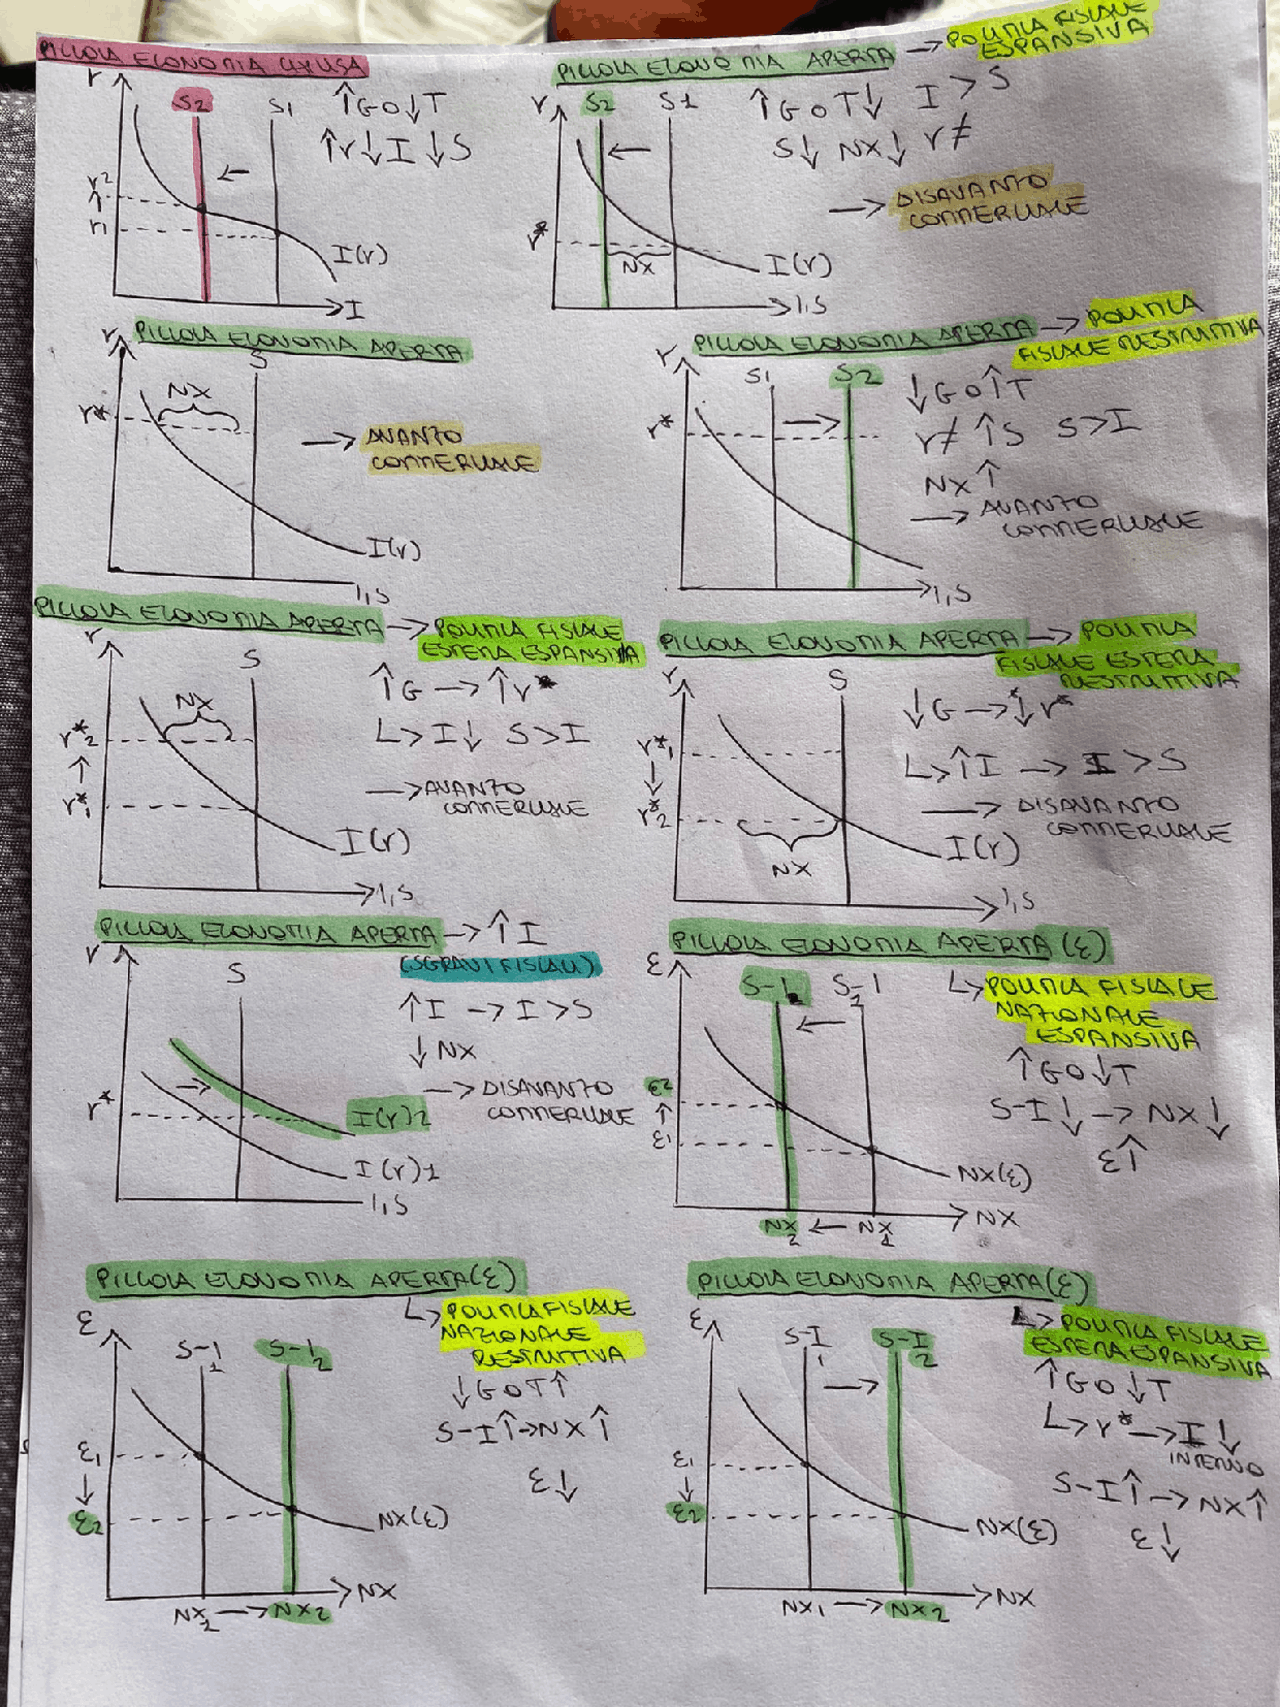 PICCOLA ECONOMIA CHIUSA
r
S2
S1
↑G O ↓T
↑r ↓I ↓S
r2
↑
r1
I(r)
I
PICCOLA ECONOMIA APERTA → POLITICA FISCALE
ESPANSIVA
r
S2
S1
↑G O T↓ I > S
S↓ NX↓ r≠
→ DISAVANZO
COMMERCIALE
r*
NX
I(r)
I,S
PICCOLA ECONOMIA APERTA
r
S
NX
r*
→ AVANZO
COMMERCIALE
I(r)
I,S
PICCOLA ECONOMIA APERTA → POLITICA
FISCALE RESTRITTIVA
r
S1
S2
↓G O ↑T
r*
r≠ ↑S S>I
NX↑
→ AVANZO
COMMERCIALE
I,S
PICCOLA ECONOMIA APERTA → POLITICA FISCALE
ESTERA ESPANSIVA
r
S
↑G → ↑r*
NX
r*2
↑
r*1
↳ I↓ S>I
→ AVANZO
COMMERCIALE
I(r)
I,S
PICCOLA ECONOMIA APERTA → POLITICA
FISCALE ESTERA
RESTRITTIVA
r
S
↓G → ↓r*
r*1
↓
r*2
↳ ↑I → I > S
→ DISAVANZO
COMMERCIALE
NX
I(r)
I,S
PICCOLA ECONOMIA APERTA → ↑I
(SGRAVI FISCALI)
r
S
↑I → I>S
↓NX
→ DISAVANZO
COMMERCIALE
r*
I(r)2
I(r)1
I,S
PICCOLA ECONOMIA APERTA (ε)
↳ POLITICA FISCALE
NAZIONALE
ESPANSIVA
ε
S-I2
S-I1
↑G O ↓T
S-I↓ → NX↓
ε↑
ε2
↑
ε1
NX(ε)
NX2 ← NX1
NX
PICCOLA ECONOMIA APERTA (ε)
↳ POLITICA FISCALE
NAZIONALE
RESTRITTIVA
ε
S-I1
S-I2
↓G O T↑
S-I↑ → NX↑
ε↓
ε1
↓
ε2
NX(ε)
NX
NX1 → NX2
PICCOLA ECONOMIA APERTA (ε)
↳ POLITICA FISCALE
ESTERA ESPANSIVA
ε
S-I1
S-I2
↑G O ↓T
↳ r* → I↓
INTERNO
S-I↑ → NX↑
ε↓
ε1
↓
ε2
NX(ε)
NX
NX1 → NX2